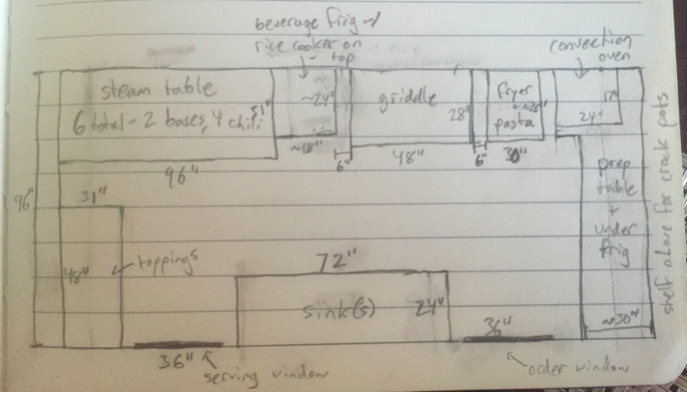 beverage frig w/
rice cooker on
top
convection
oven
steam table
6 total - 2 bases, 4 chili
31"
~24"
griddle
28"
fryer
+ ~26"
pasta
17"
24"
~18"
6"
48"
6"
30"
96"
96"
31"
prep
table
+
under
frig
shelf above for crock pots
48"
toppings
72"
sink(s)
24"
36"
~30"
36"
serving window
order window